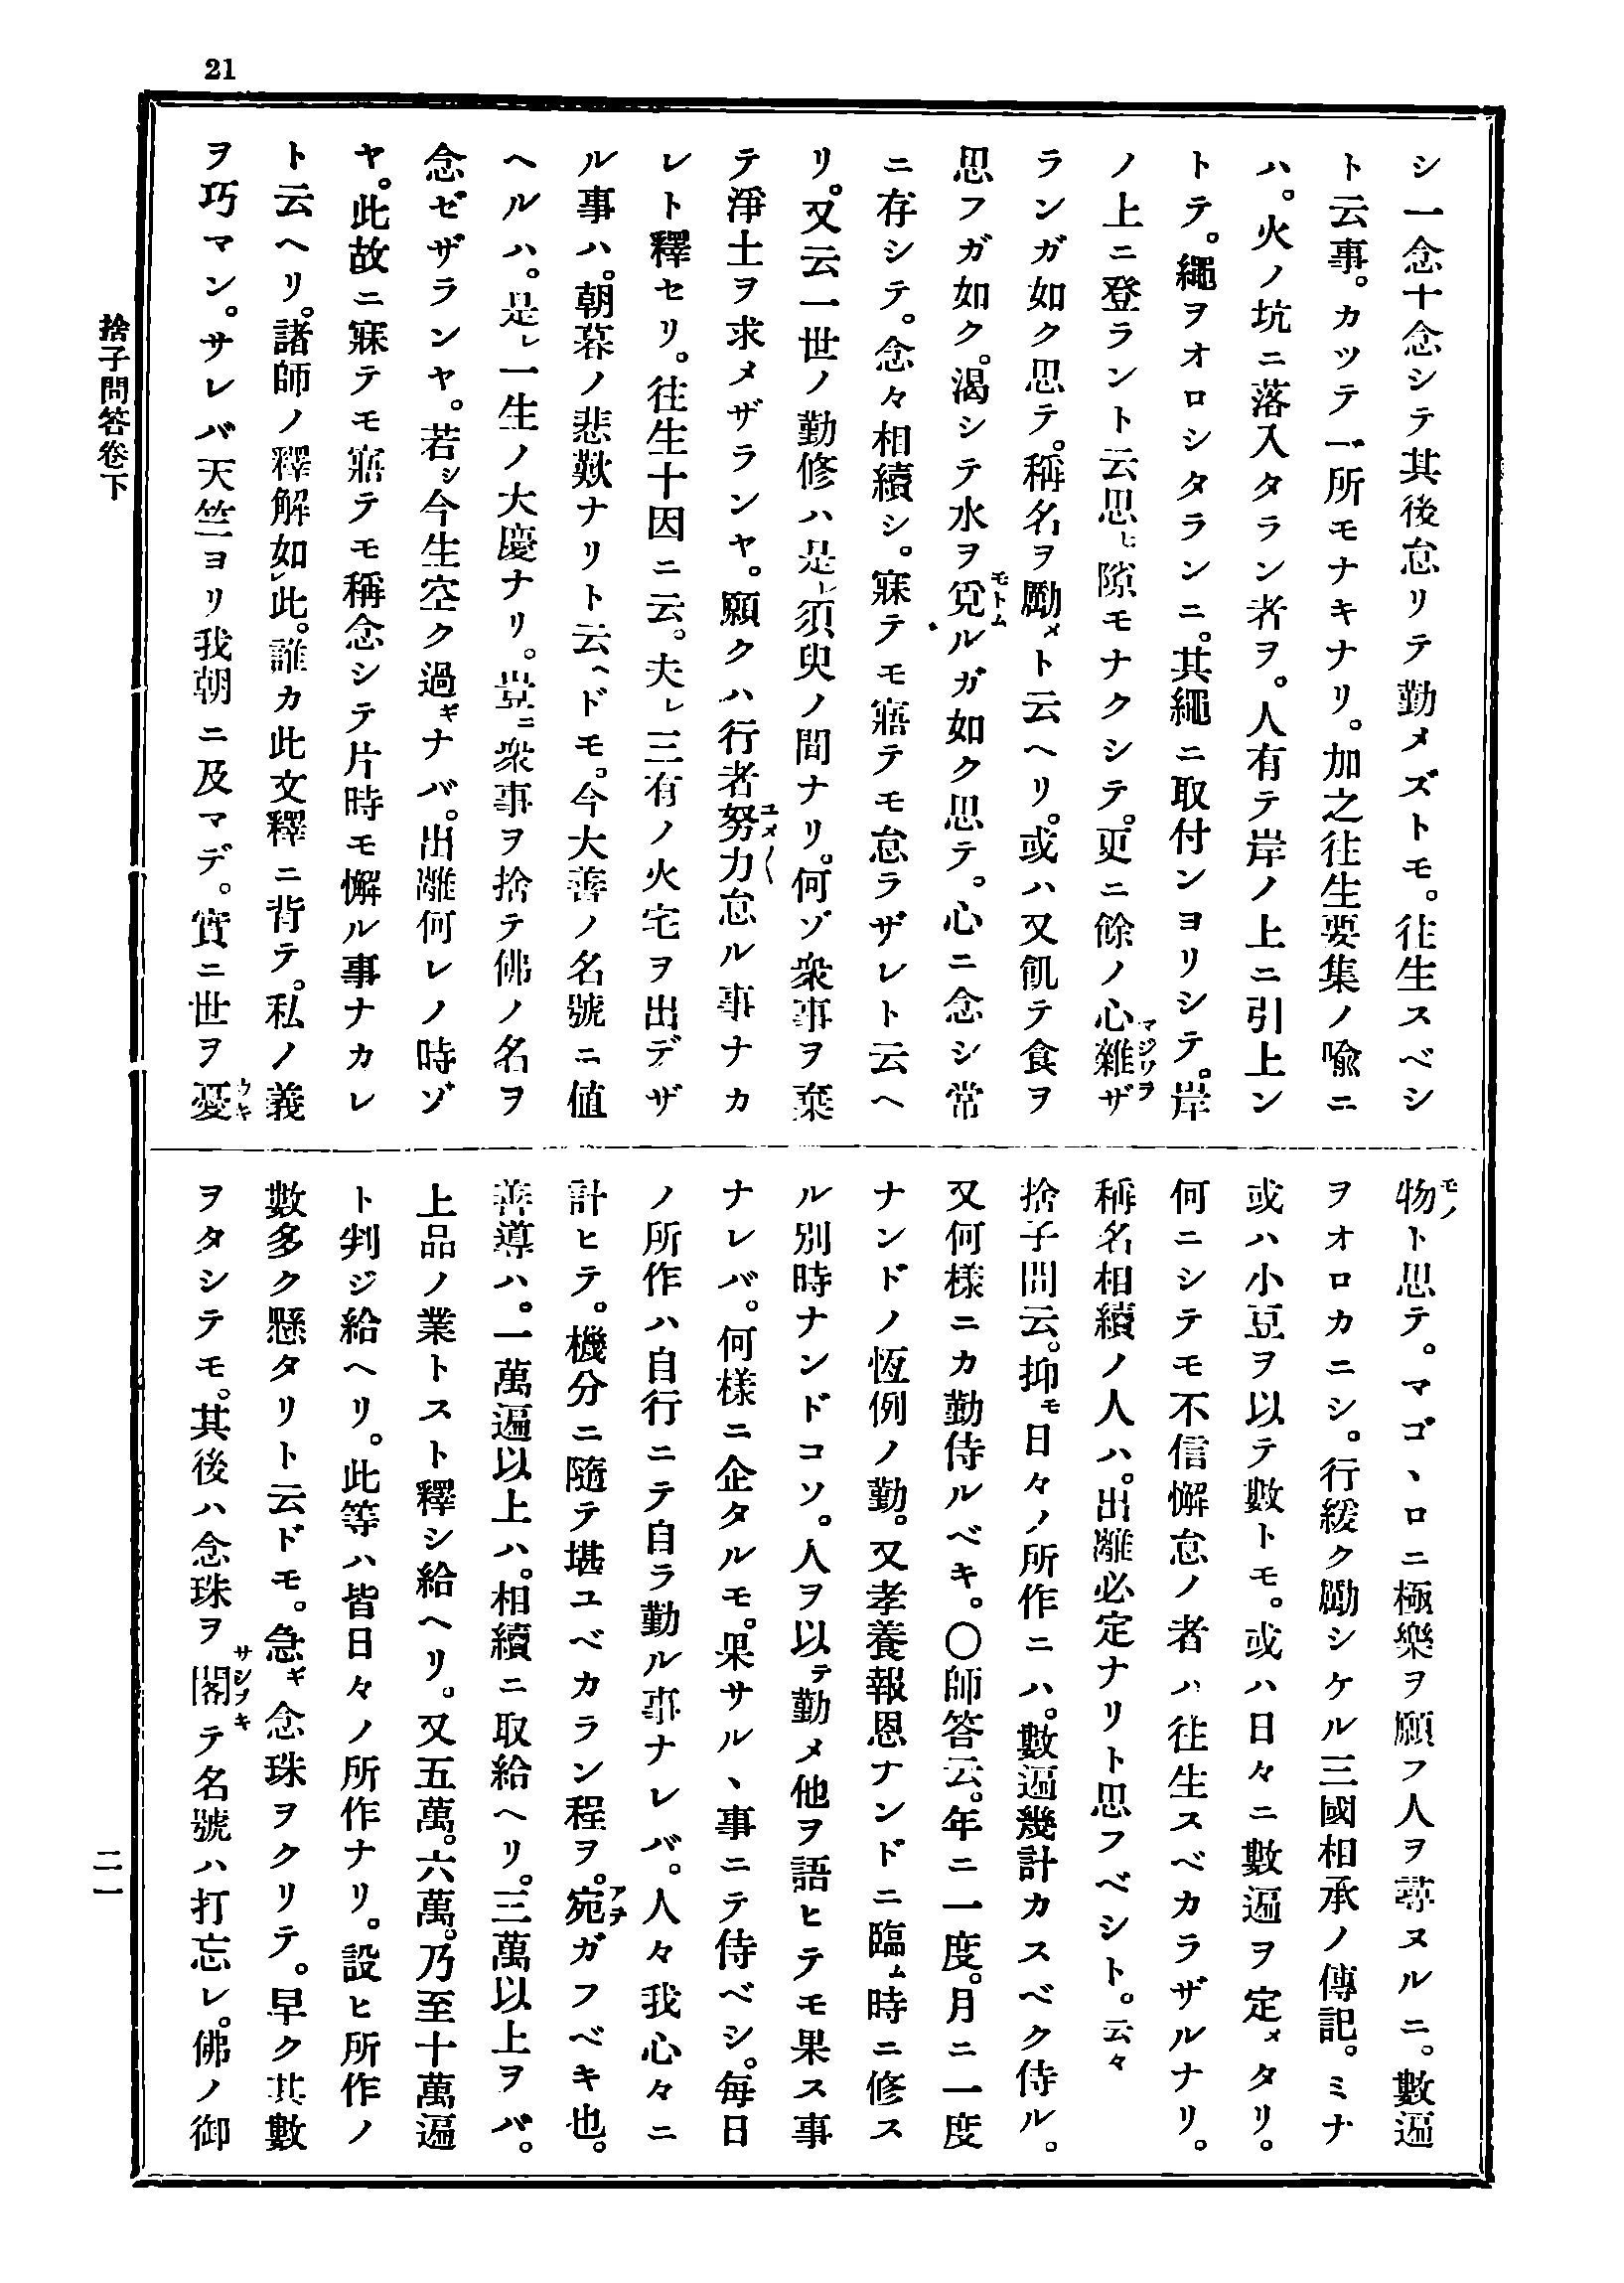 21
シ一念十念シテ其後怠リテ勤メズトモ。往生スベシ
ト云事。カツテ一所モナキナリ。加之往生要集ノ喩ニ
ハ。火ノ坑ニ落入タラン者ヲ。人有テ岸ノ上ニ引上ン
トテ。繩ヲオロシタランニ。其繩ニ取付ンヨリシテ。岸
ノ上ニ登ラント云思ヒ隙モナクシテ。更ニ餘ノ心雜マジワヲザ
ランガ如ク思テ。稱名ヲ勵メト云ヘリ。或ハ又飢テ食ヲ
思フガ如ク。渴シテ水ヲ覓モトムルガ如ク思テ。心ニ念シ常
ニ存シテ。念々相續シ。寐テモ寤テモ怠ラザレト云ヘ
リ。又云一世ノ勤修ハ是レ須臾ノ間ナリ。何ゾ衆事ヲ棄
テ淨土ヲ求メザランヤ。願クハ行者努力ユメ〱怠ル事ナカ
レト釋セリ。往生十因ニ云。夫レ三有ノ火宅ヲ出デザ
ル事ハ。朝暮ノ悲歎ナリト云ヘドモ。今大善ノ名號ニ値
ヘルハ。是レ一生ノ大慶ナリ。豈ニ衆事ヲ捨テ佛ノ名ヲ
念ゼザランヤ。若シ今生空ク過ギナバ。出離何レノ時ゾ
ヤ。此故ニ寐テモ寤テモ稱念シテ片時モ懈ル事ナカレ
ト云ヘリ。諸師ノ釋解如レ此。誰カ此文釋ニ背テ。私ノ義
ヲ巧マン。サレバ天竺ヨリ我朝ニ及マデ。實ニ世ヲ憂ウキ
物モノト思テ。マゴヽロニ極樂ヲ願フ人ヲ尋ヌルニ。數遍
ヲオロカニシ。行緩ク勵シケル三國相承ノ傳記。ミナ
或ハ小豆ヲ以テ數トモ。或ハ日々ニ數遍ヲ定メタリ。
何ニシテモ不信懈怠ノ者ハ往生スベカラザルナリ。
稱名相續ノ人ハ。出離必定ナリト思フベシト。云々
捨子問云。抑モ日々ノ所作ニハ。數遍幾計カスベク侍ル。
又何樣ニカ勤侍ルベキ。〇師答云。年ニ一度。月ニ一度
ナンドノ恆例ノ勤。又孝養報恩ナンドニ臨ム時ニ修ス
ル別時ナンドコソ。人ヲ以テ勤メ他ヲ語ヒテモ果ス事
ナレバ。何樣ニ企タルモ。果サルヽ事ニテ侍ベシ。每日
ノ所作ハ自行ニテ自ラ勤ル事ナレバ。人々我心々ニ
計ヒテ。機分ニ隨テ堪ユベカラン程ヲ。宛アテガフベキ也。
善導ハ。一萬遍以上ハ。相續ニ取給ヘリ。三萬以上ヲバ。
上品ノ業トスト釋シ給ヘリ。又五萬。六萬。乃至十萬遍
ト判ジ給ヘリ。此等ハ皆日々ノ所作ナリ。設ヒ所作ノ
數多ク懸タリト云ドモ。急ギ念珠ヲクリテ。早ク其數
ヲタシテモ。其後ハ念珠ヲ閣サシヲキテ名號ハ打忘レ。佛ノ御
捨子問答卷下
二一